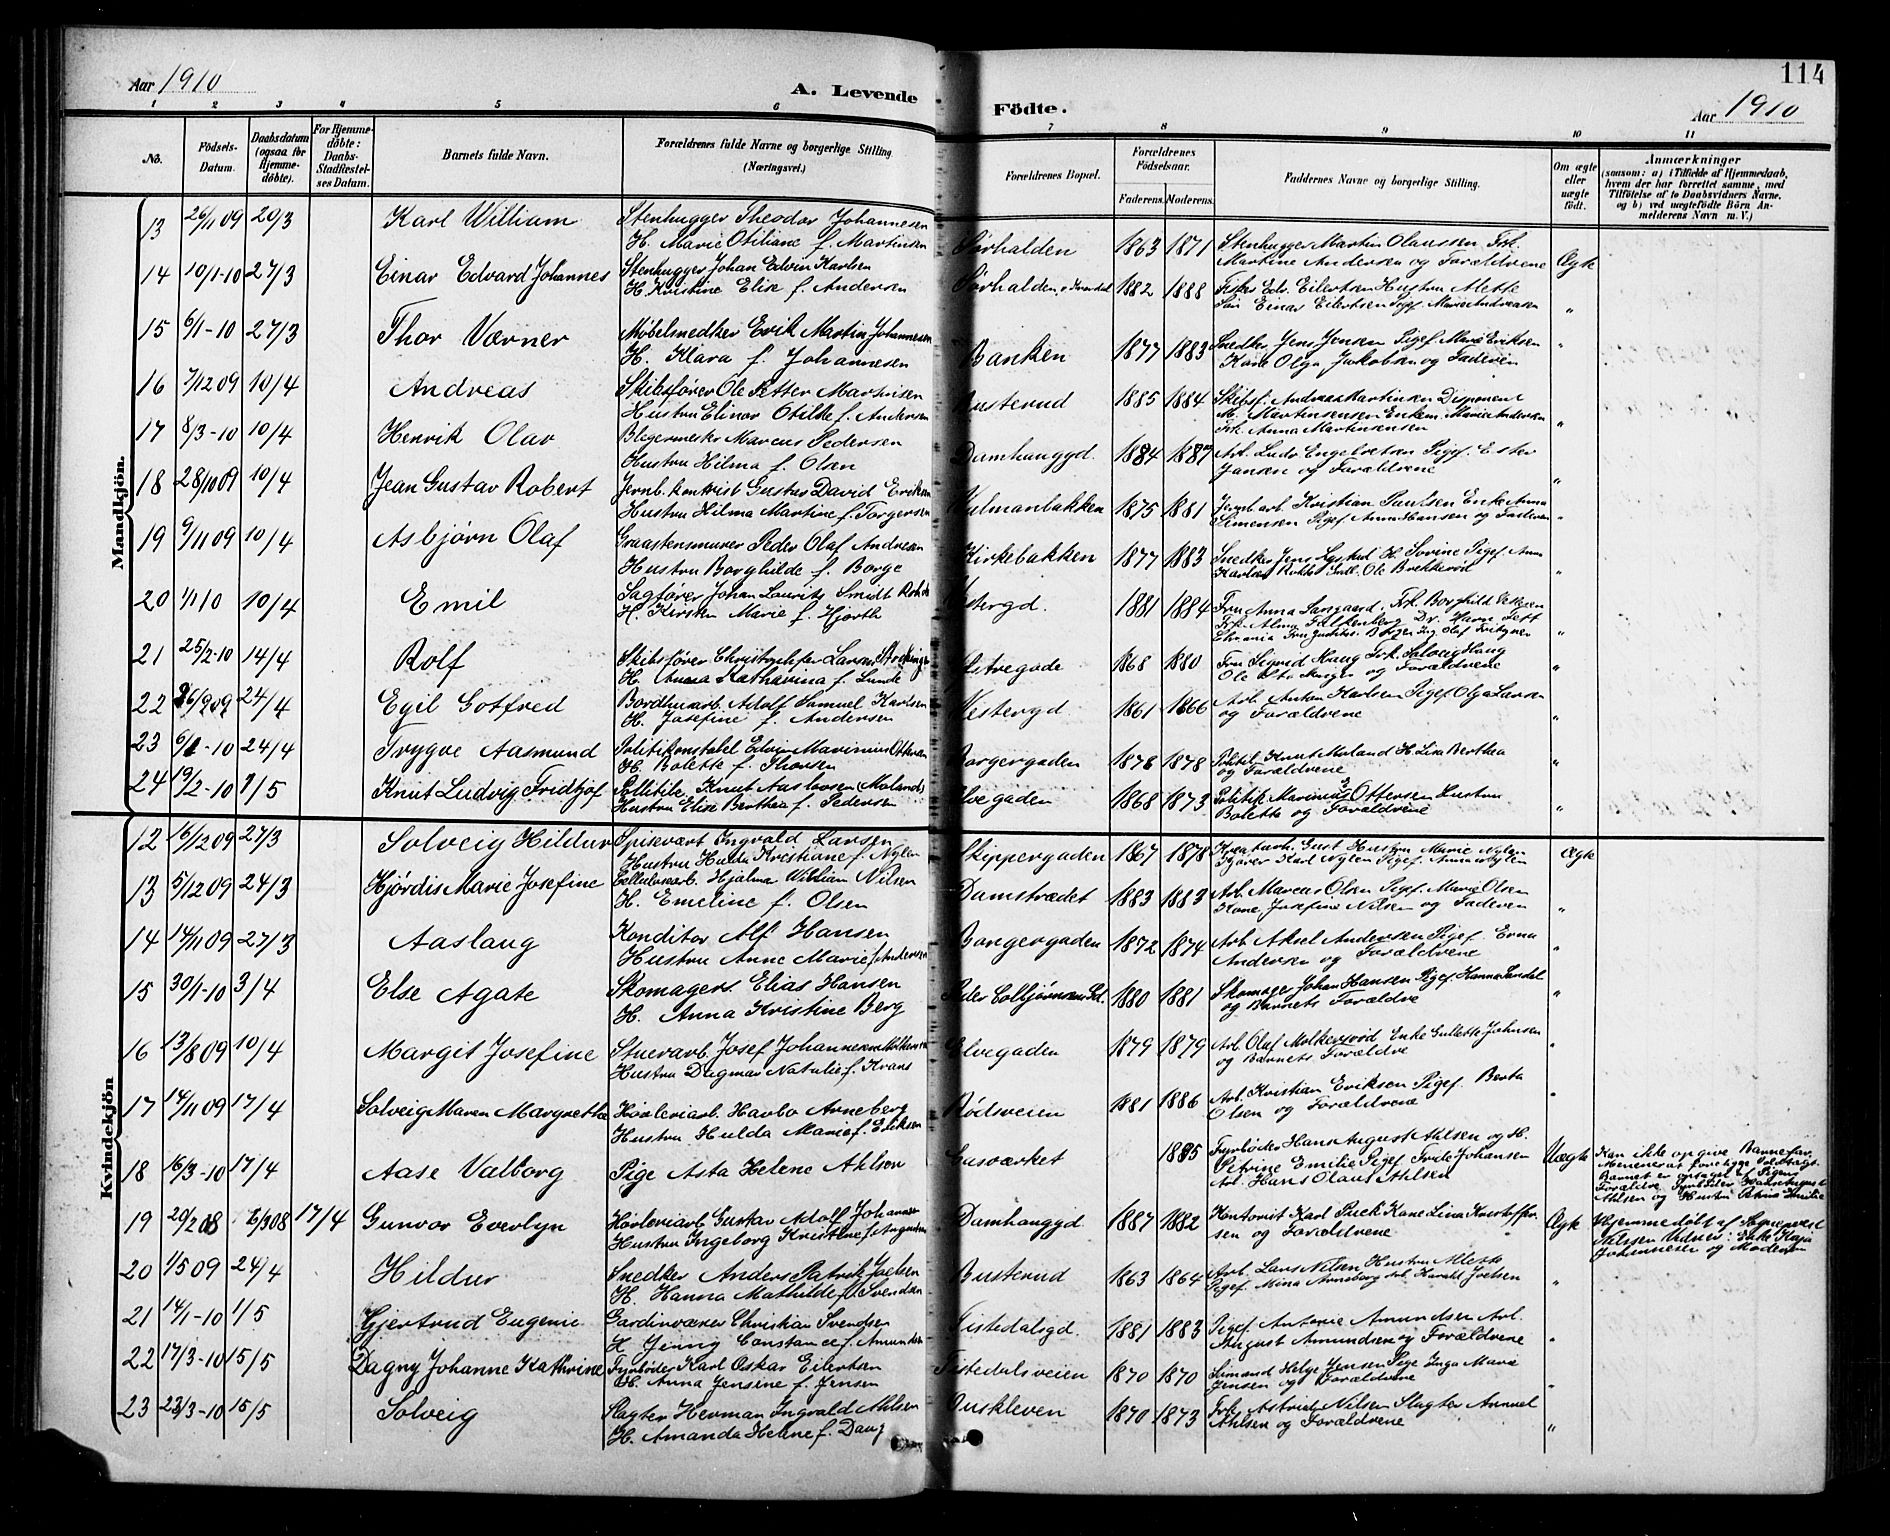 Aar 1910
A. Levende
Födte.
114
Aar 1910
1 2 3 4 5 6 7 8 9 10 11
No.
Födsels-
Datum.
Daabsdatum
(ogsaa for
Hjemme-
döbte).
For Hjemme-
döbte:
Daabs-
Stadfæstel-
ses Datum.
Barnets fulde Navn.
Forældrenes fulde Navne og borgerlige Stilling
(Næringsvei.)
Forældrenes Bopæl.
Forældrenes
Födselsaar.
Faderens. Moderens.
Faddernes Navne og borgerlige Stilling.
Om ægte
eller
uægte
födt.
Anmærkninger
(saasom: a) i Tilfælde af Hjemmedaab,
hvem der har forrettet samme, med
Tilföielse af to Daabsvidners Navne,
og b) ved uægtefödte Börn An-
melderens Navn m. V.)
Mandkjön.
13 26/11 09 20/3 Karl William Stenhugger Theodor Johannesen
H. Marie Otiliane f. Martinsen
Sørhalden 1863 1871 Stenhugger Martin Olaussen Frk.
Martine Andersen og Forældrene Ægte
14 10/1-10 27/3 Einar Edvard Johannes Stenhugger Johan Edvin Karlsen
H. Kristine Elise f. Andersen
Sørhalden 1882 1888 Fisker Edv. Eilertsen Hustru Alette
Søn Einar Eilertsen Pigef. Marie Andreasen "
15 6/1-10 27/3 Thor Værner Møbelsnedker Erik Martin Johannesen
H. Klara f. Johannesen
Banken 1877 1883 Snedker Jens Jensen Pigef. Marie Eriksen
Kone Olga Jakobsen og Faderen "
16 7/12 09 10/4 Andreas Skibsfører Ole Petter Martinsen
Hustru Elinor Otilde f. Andersen
Busterud 1885 1884 Skibsf. Andreas Martinsen Disponent
M. Martinsensen Enkem. Maria Andersen
Frk. Anna Martinsensen "
17 8/3-10 10/4 Henrik Olav Marcus Pedersen
Hustru Hilma f. Olsen
Damhauggd. 1884 1887 Arb. Ludv. Engelbretsen Pigef. Ester
Jansen og Forældrene "
18 28/10 09 10/4 Jean Gustav Robert Jernb. kontrist Gustav David Eriksen
Hustru Hilma Martine f. Torgersen
1875 1881 Jernb. arb. Kristian Paulsen Enke Anna
Simensen Pigef. Anna Hansen og Faderen "
19 9/11 09 10/4 Asbjørn Olaf Graastensmurer Peder Olaf Andresen
Hustru Borghilde f. Borge
Kirkebakken 1877 1883 Snedker Jens H. Sovine Pigef. Anna
Karlsen Ole Brekkerød "
20 1/1 10 10/4 Emil Sagfører Johan Lauritz Smidt
H. Kirsten Marie f. Hjorth
Vestergd. 1881 1884 Fru Anna Frk. Borghild
Frk. Alma Falkenberg Dr. "
21 25/2-10 14/4 Rolf Skibsfører Christopher Larsen Stockinger
H. Anna Katharina f. Lunde
1868 1880 Fru Sigrid Haug Frk. Solveig Haug
Ole og Forældrene "
22 24/4 Egil Gotfred Bordhusarb. Adolf Samuel Karlsen
H. Josefine f. Andersen
Vestergd 1861 1866 Arb. Anton Karlsen Pigef. Olga Larsen
og Forældrene "
23 24/4 Trygve Aasmund Politikonstabel Edvin Marinius Ottersen
H. Bolette f. Thoresen
Borgergaden 1878 1878 Politik. Knut Moland H. Lisa Berthea
og Forældrene "
24 19/2-10 1/5 Knut Ludvig Fridtjof Knut Aaslovsen (Moland)
Hustru Elise Berthea f. Pedersen
Elvegaden 1868 1873 Politik. Marinius Ottersen Hustru
Bolette og Forældrene "
Kvindekjön
12 16/12 09 27/3 Solveig Hildur Spisevært Ingvald Larsen
Hustru Hulda Kristiane f. Nylen
Skippergaden 1867 1878 Gust Hustru Marie Nylen
Kjører Karl Nylen Pigef. Anna Nylen Ægte
13 5/12 09 24/3 Hjørdis Marie Josefine Cellulosearb. Hjalmar William Nilsen
H. Emeline f. Olsen
Damstrædet 1883 1883 Arb. Marcus Olsen Pigef. Marie Olsen
Kone Josefine Nilsen og Faderen "
14 14/11 09 27/3 Aaslaug Konditor Alf Hansen
Hustru Anne Marie f. Andersen
Borgergaden 1872 1874 Arb. Aksel Andersen Pigef. Erna
Andersen og Forældrene "
15 30/1-10 3/4 Else Agate Skomagers. Elias Hansen
H. Anna Kristine Berg
Peder Colbjørnsens Gd. 1880 1881 Skomager Johan Hansen Pigef. Hanna
og Barnets Forældre "
16 13/8 09 10/4 Margit Josefine Stuerarb. Josef Johannesen
Hustru Dagmar Natalie f. Krans
Elvegaden 1879 1879 Arb. Olaf Molkersrød Enke Gullette Johnsen
og Barnets Forældre "
17 14/11 09 17/4 Solveig Maren Margrethe Høvleriarb. Havbo Arneberg
Hustru Hulda Marie f. Eriksen
Rødsveien 1881 1886 Arb. Kristian Eriksen Pigef. Berta
Olsen og Forældrene "
18 16/3-10 17/4 Aase Valborg Pige Asta Helene Ahlsen
Gasværket 1885 Fyrbøder Hans August Ahlsen og H.
Petrine Emilie Pigef Frida Johansen
Arb. Hans Olaus Ahlsen
Uægte Kan ikke opgive Barnefar.
Barnet er optaget af Pigens
Forældre Fyrbøder Hans August
Ahlsen og Hustru Petrine Emilie
19 29/2 08 6/3 08 17/4 Gunvor Evelyn Høvleriarb. Gustav Adolf Johansen
Hustru Ingeborg Kristine f. Augustsen
Damhauggd. 1887 1882 Kontorist Karl Kone Lina Kristoffer-
sen og Forældrene
Ægte Hjemmedøbt af Sognepræst
Nilssen Vidner: Enke Kaja
Johannesen og Moderen
20 1/5 09 24/4 Hildur Snedker Anders Patrik Joelsen
H. Hanna Mathilde f. Svendsen
Busterud 1863 1864 Arb. Lars Nilsen Hustru Alette
Pigef. Mina Arneberg Arb. Harald Joelsen "
21 14/1-10 1/5 Gjertrud Eugenie Gardinvæver Christian Svendsen
H Jenny Constance f. Amundsen
Tistedalsgd. 1881 1883 Pigef. Antonie Amundsen Arb.
August Amundsen og Forældrene "
22 17/3-10 15/5 Dagny Johanne Kathrine Fyrbøder Karl Oskar Eilertsen
H. Anna Jensine f. Jensen
Tistedalsveien 1870 1870 Sømand Helge Jensen Pige Inga Marie
Jensen og Forældrene "
23 23/3-10 15/5 Solveig Slagter Herman Ingvald Ahlsen
H. Amanda Helene f. Daug
Ouskleven 1870 1873 Frk. Astrid Nilsen Slagter Annæl
Ahlsen og Forældrene "